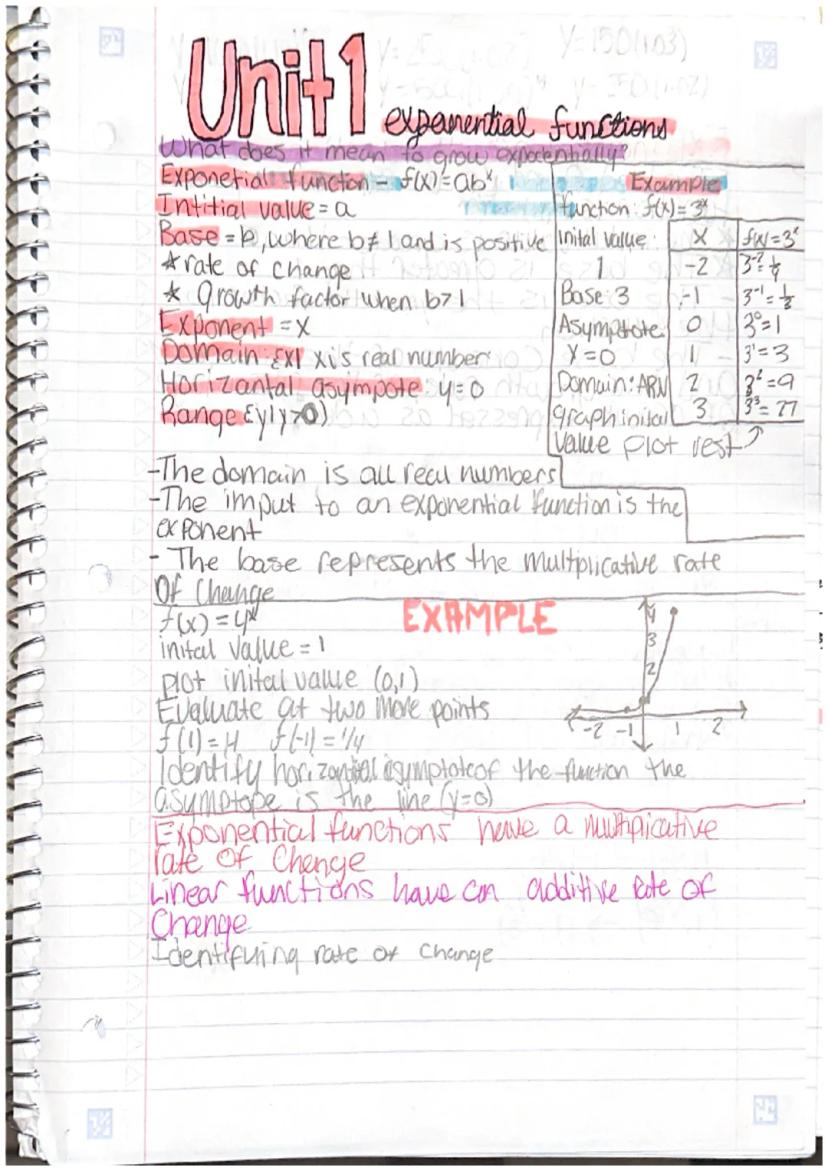 Unit 1
exponential functions
What does it mean to grow expotentially?
Exponetial function - f(x)=abˣ
Intitial value = a
Base = b, where b≠1 and is positive
* rate of change
* Growth factor when b>1
Exponent = x
Domain: {x| x is real number
Horizantal asympote: y=0
Range {y|y>0}
Example
function: f(x)=3ˣ
Inital value:
1
Base: 3
Asymptote:
Y=0
Domain: ARN
graph inital
value plot rest
X f(x)=3ˣ
-2 3⁻²=1/9
-1 3⁻¹=1/3
0 3⁰=1
1 3¹=3
2 3²=9
3 3³=27
-The domain is all real numbers
-The imput to an exponential function is the
exponent
- The base represents the multplicative rate
Of Change
EXAMPLE
f(x)=4ˣ
inital value = 1
plot inital value (0,1)
Evaluate at two more points
f(1)=4 f(-1)=1/4
4
3
2
-2 -1 1 2
Identify horizontal asymptote of the function the
asymptope is the line (y=0)
Exponential functions have a multplicative
rate of Change
Linear functions have an additive rate of
Change
Identifying rate of Change